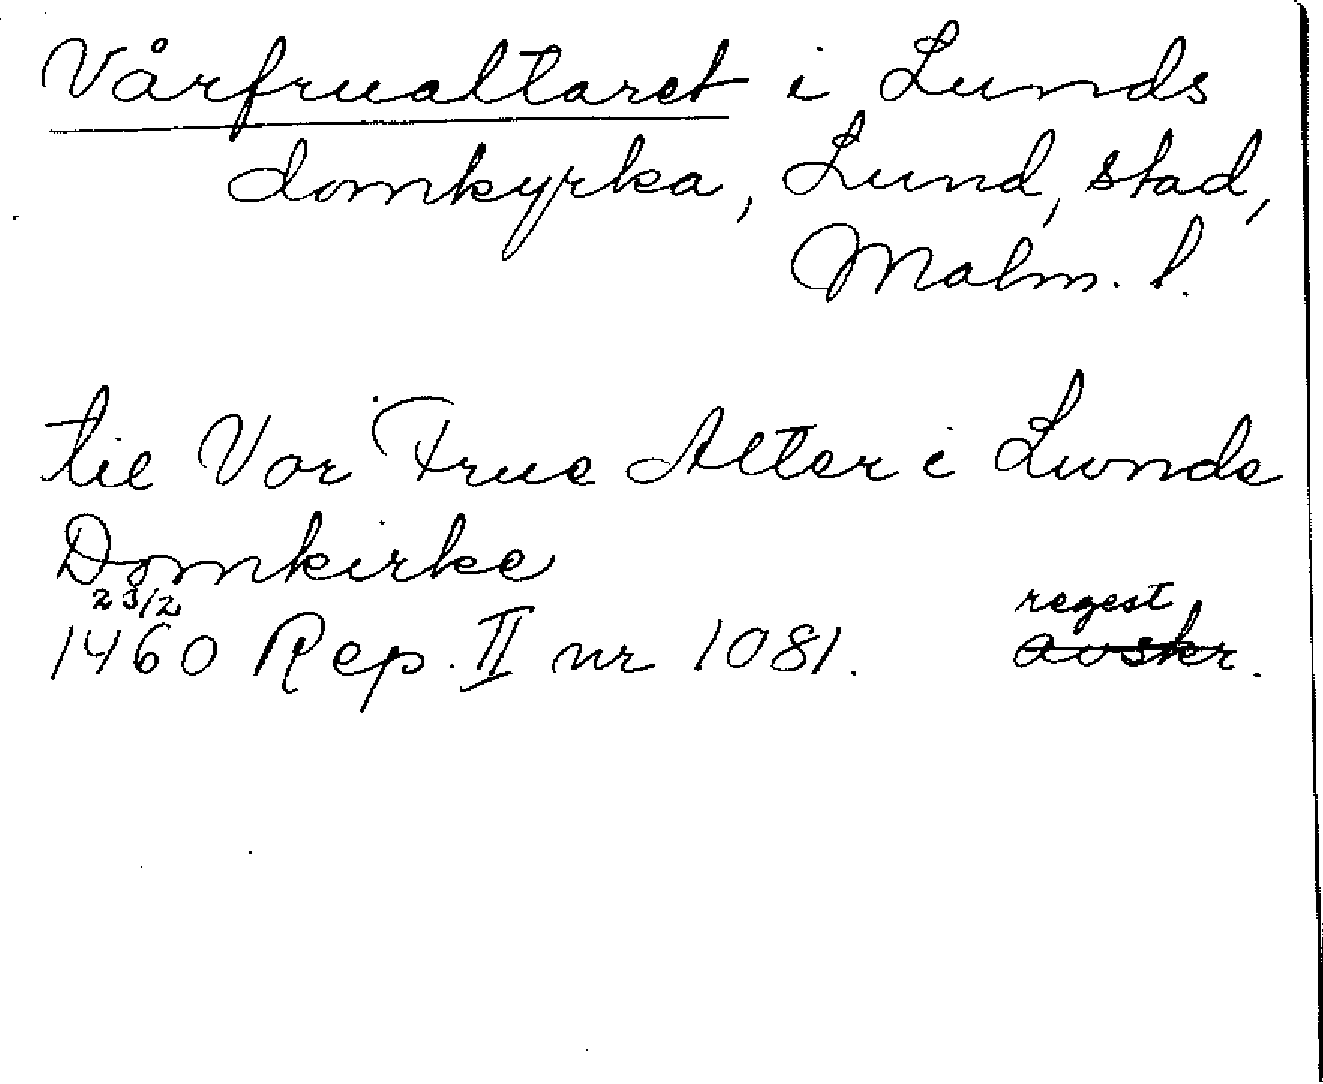 Vårfrualtaret i Lunds
domkyrka, Lund, stad,
Malm. l.
til Vor Frue Alter i Lunde
Domkirke
23/2
1460 Rep. II nr 1081.
regest
avskr.